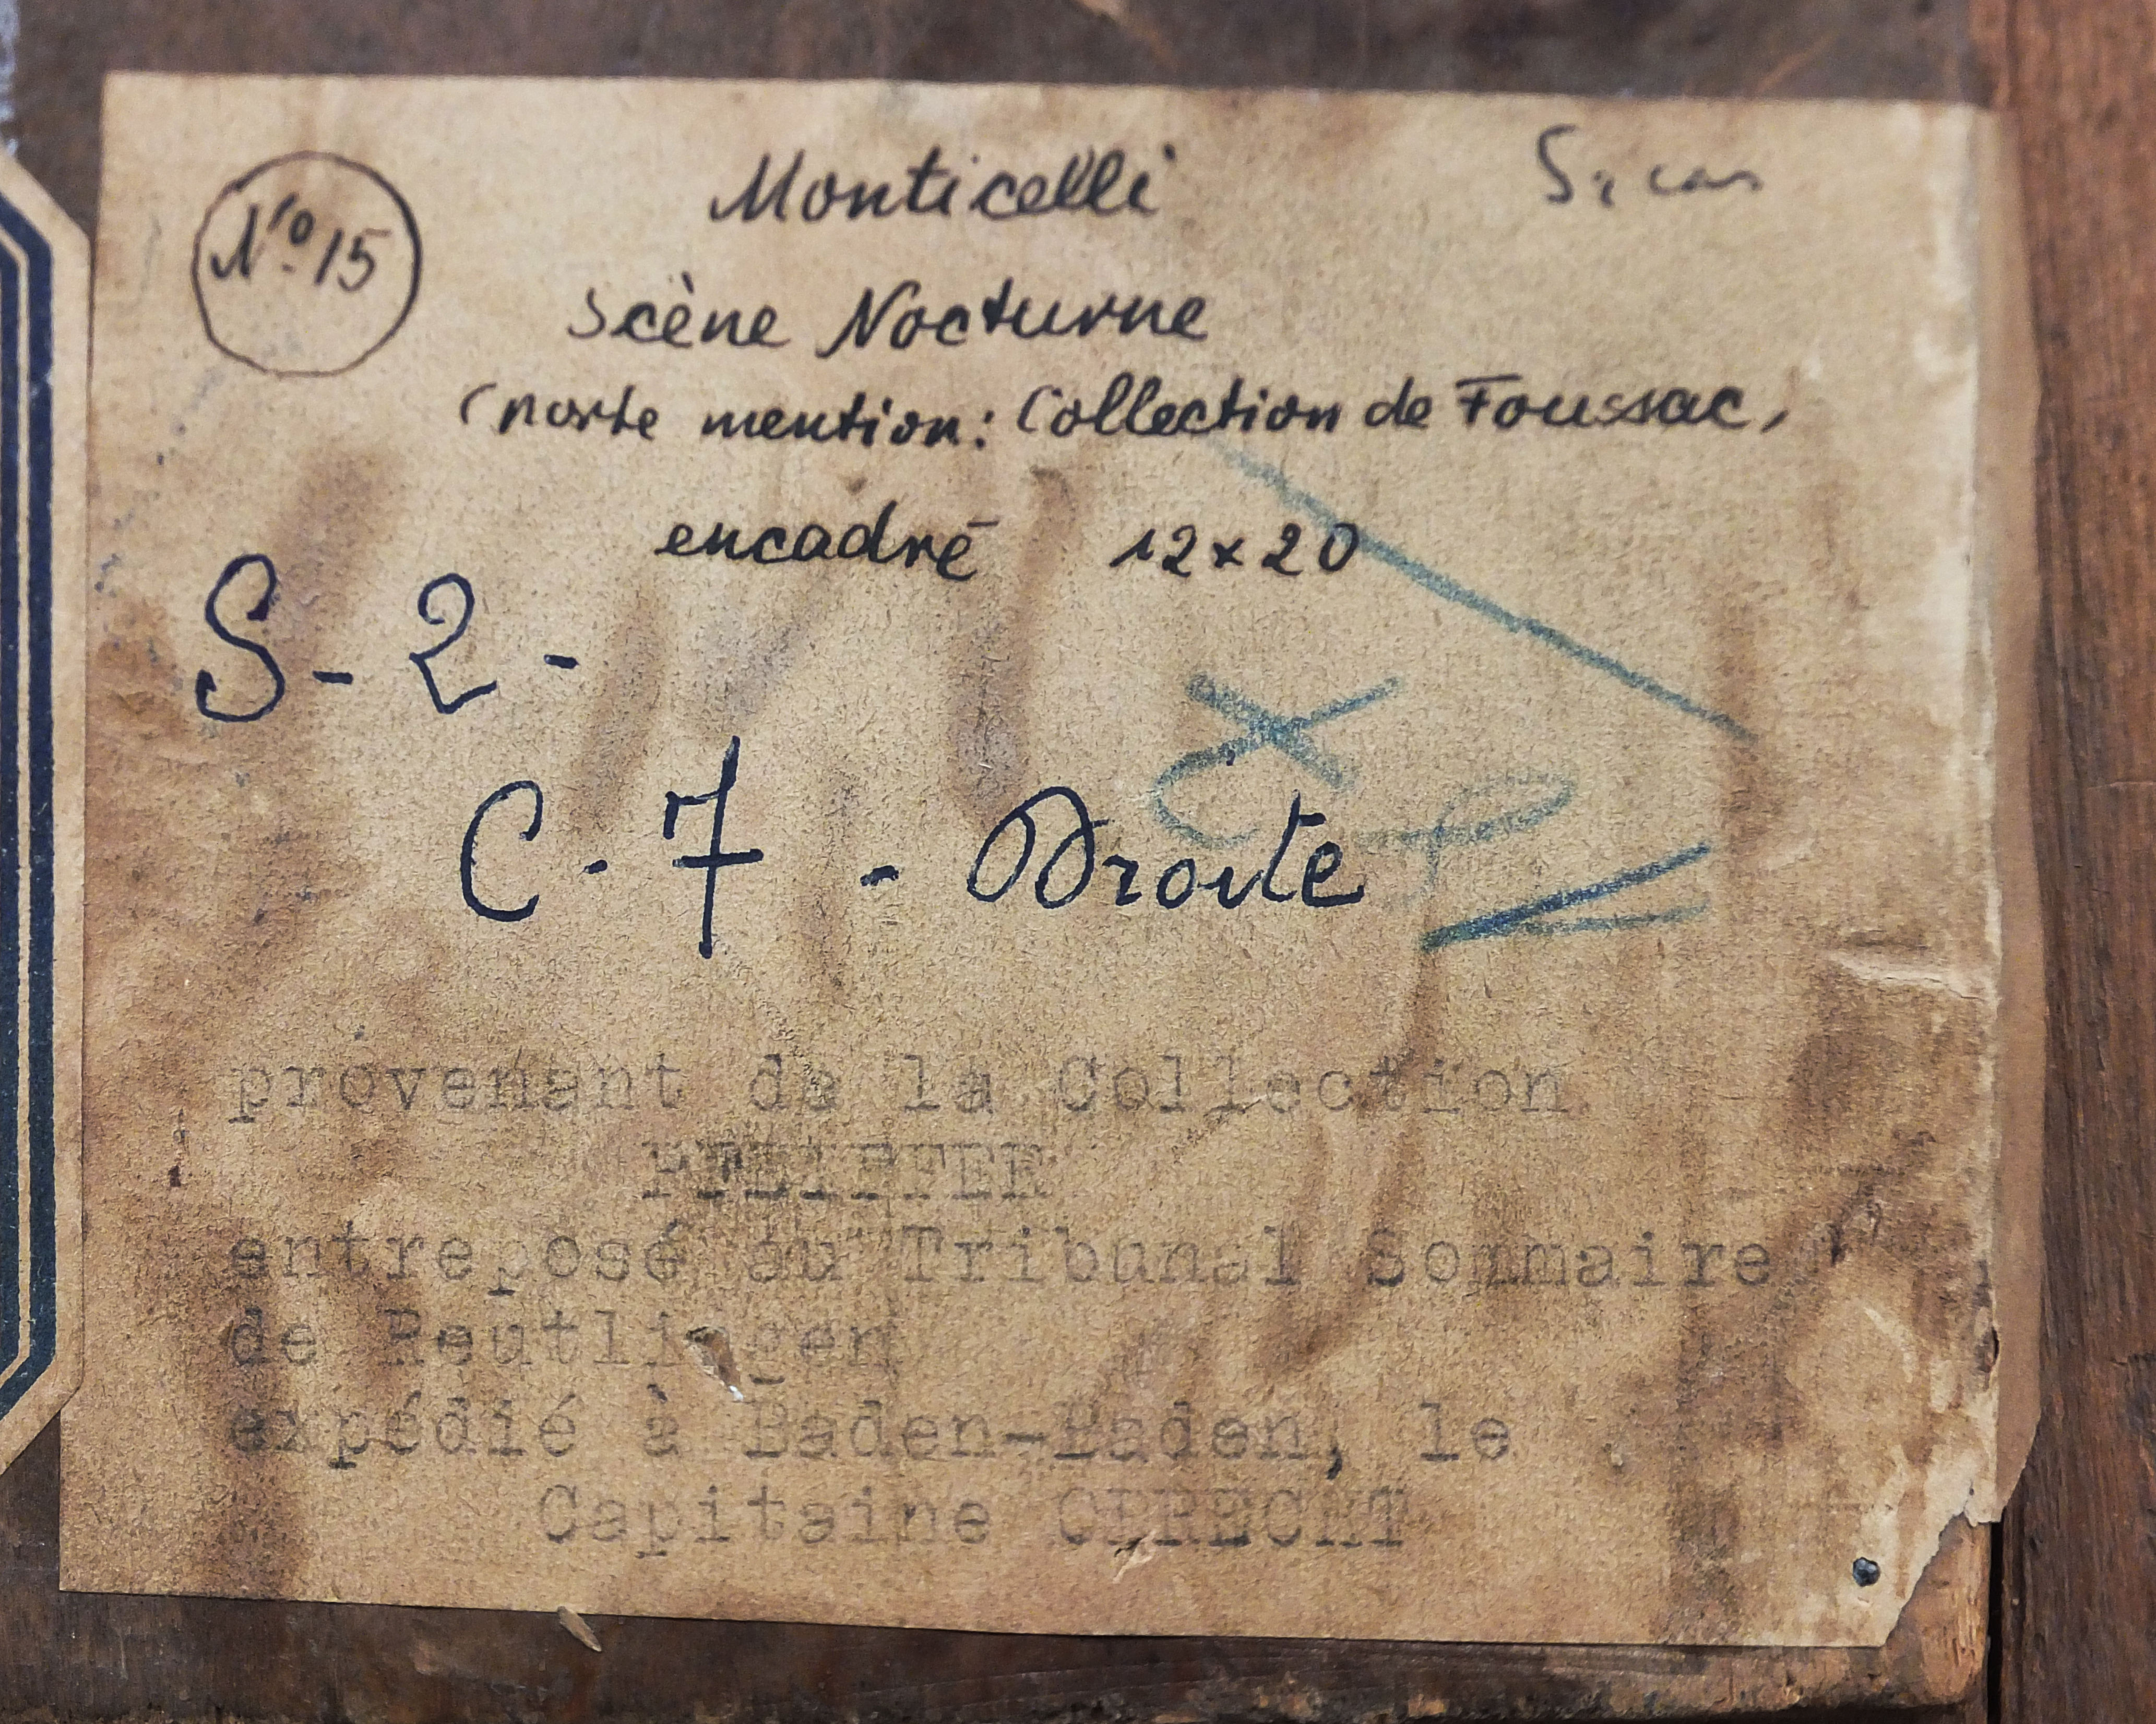 N° 15
Monticelli
Scène Nocturne
(porte mention: Collection de Foussac,
encadré 12x20
S-2-
C-7 - Droite
provenant de la Collection
PFEIFFER
entreposé au Tribunal Sommaire
de Reutlingen
expédié à Baden-Baden, le
Capitaine